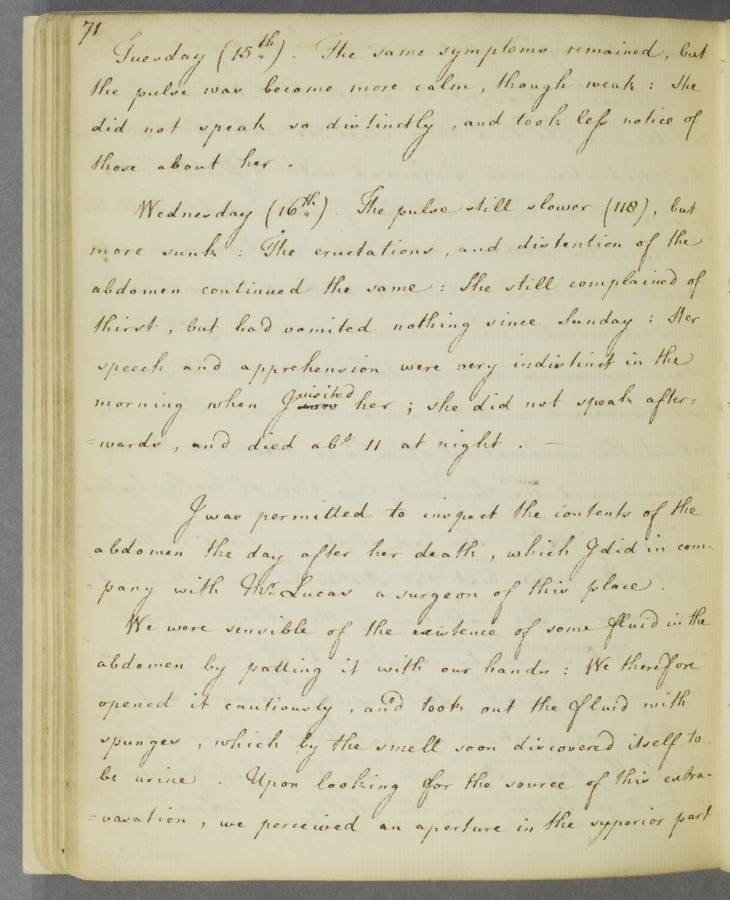 71
Tuesday (15th). The same symptoms remained, but
the pulse was become more calm, though weak: She
did not speak so distinctly, and took less notice of
those about her.
Wednesday (16th). The pulse still slower (118), but
more sunk: The eructations, and distention of the
abdomen continued the same: She still complained of
thirst, but had vomited nothing since Sunday: Her
speech and apprehension were very indistinct in the
morning when I saw visited her; she did not speak after=
=wards, and died abt. 11 at night. —
I was permitted to inspect the contents of the
abdomen the day after her death, which I did in com-
=pany with Mr. Lucas a surgeon of this place.
We were sensible of the existence of some fluid in the
abdomen by patting it with our hands: We therefore
opened it cautiously, and took out the fluid with
spunges, which by the smell soon discovered itself to
be urine. Upon looking for the source of this extra-
=vasation, we perceived an aperture in the syperior part